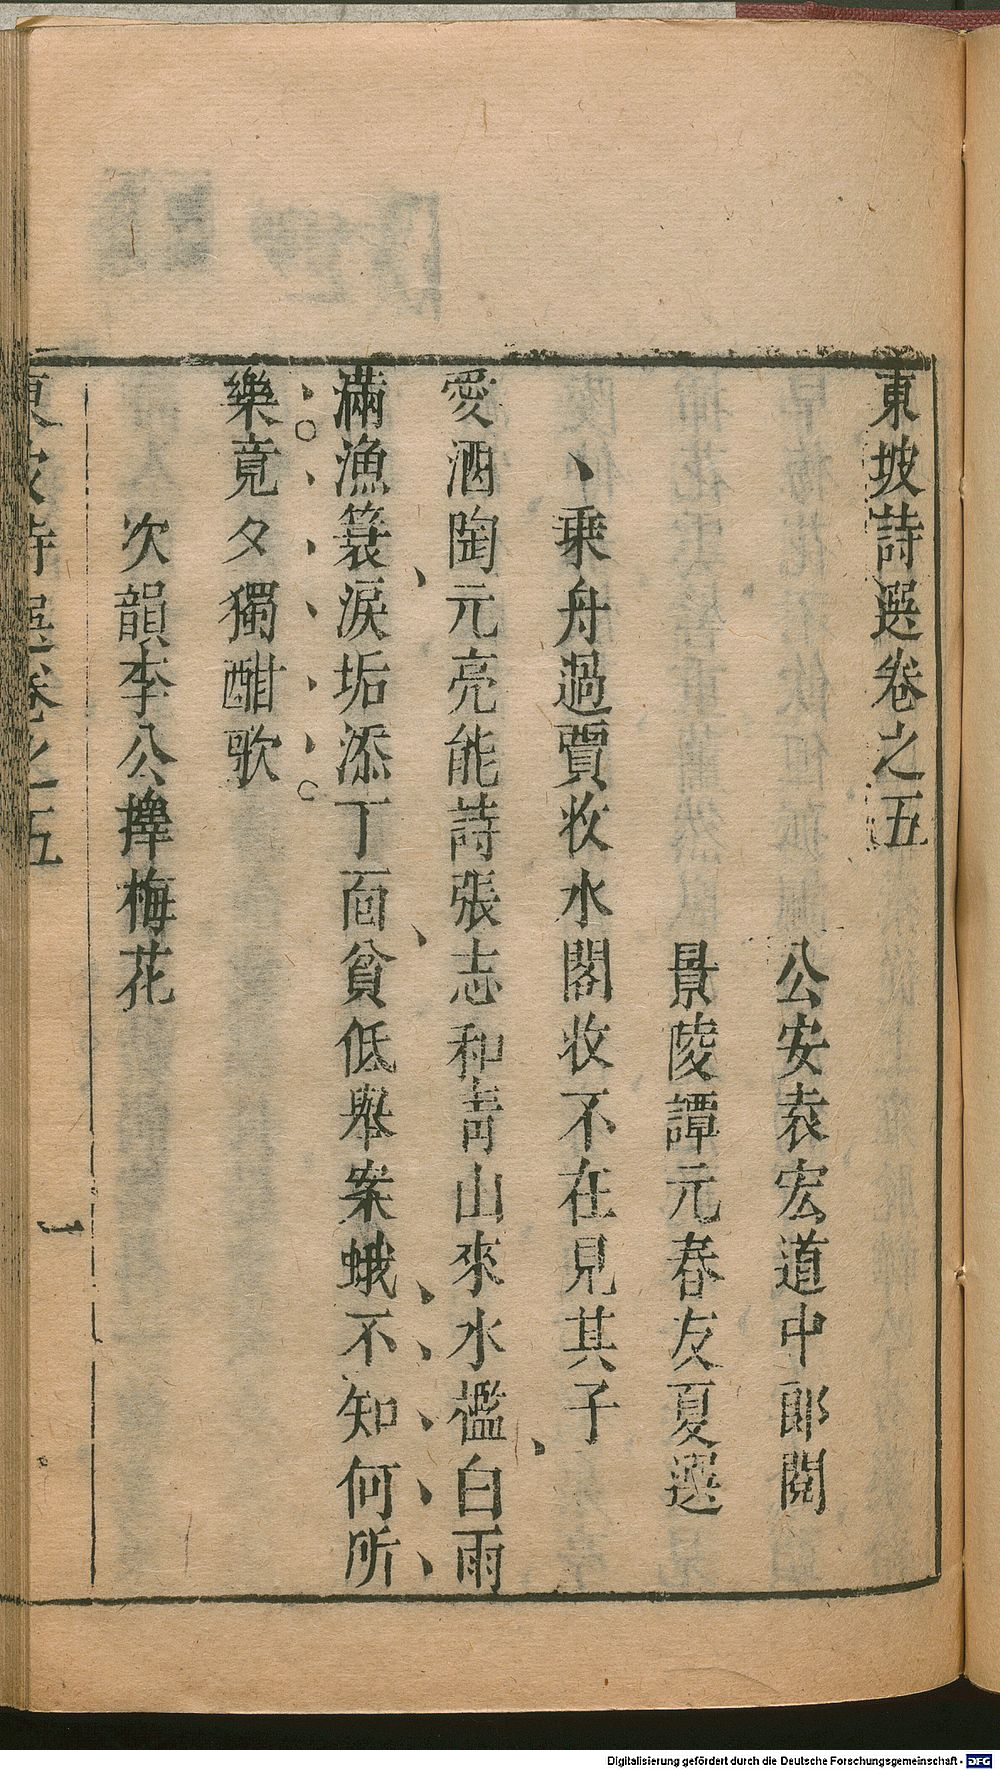 東坡詩選卷之五
公安袁宏道中郎閱
景陵譚元春友夏選
乗舟過賈收水閣收不在見其子
愛酒陶元亮能詩張志和靑山來水檻白雨
滿漁簑淚垢添丁面貧低舉案蛾不知何所
樂竟夕獨酣歌
次韻李公擇梅花
東坡詩選卷之五
一
Digitalisierung gefördert durch die Deutsche Forschungsgemeinschaft - DFG